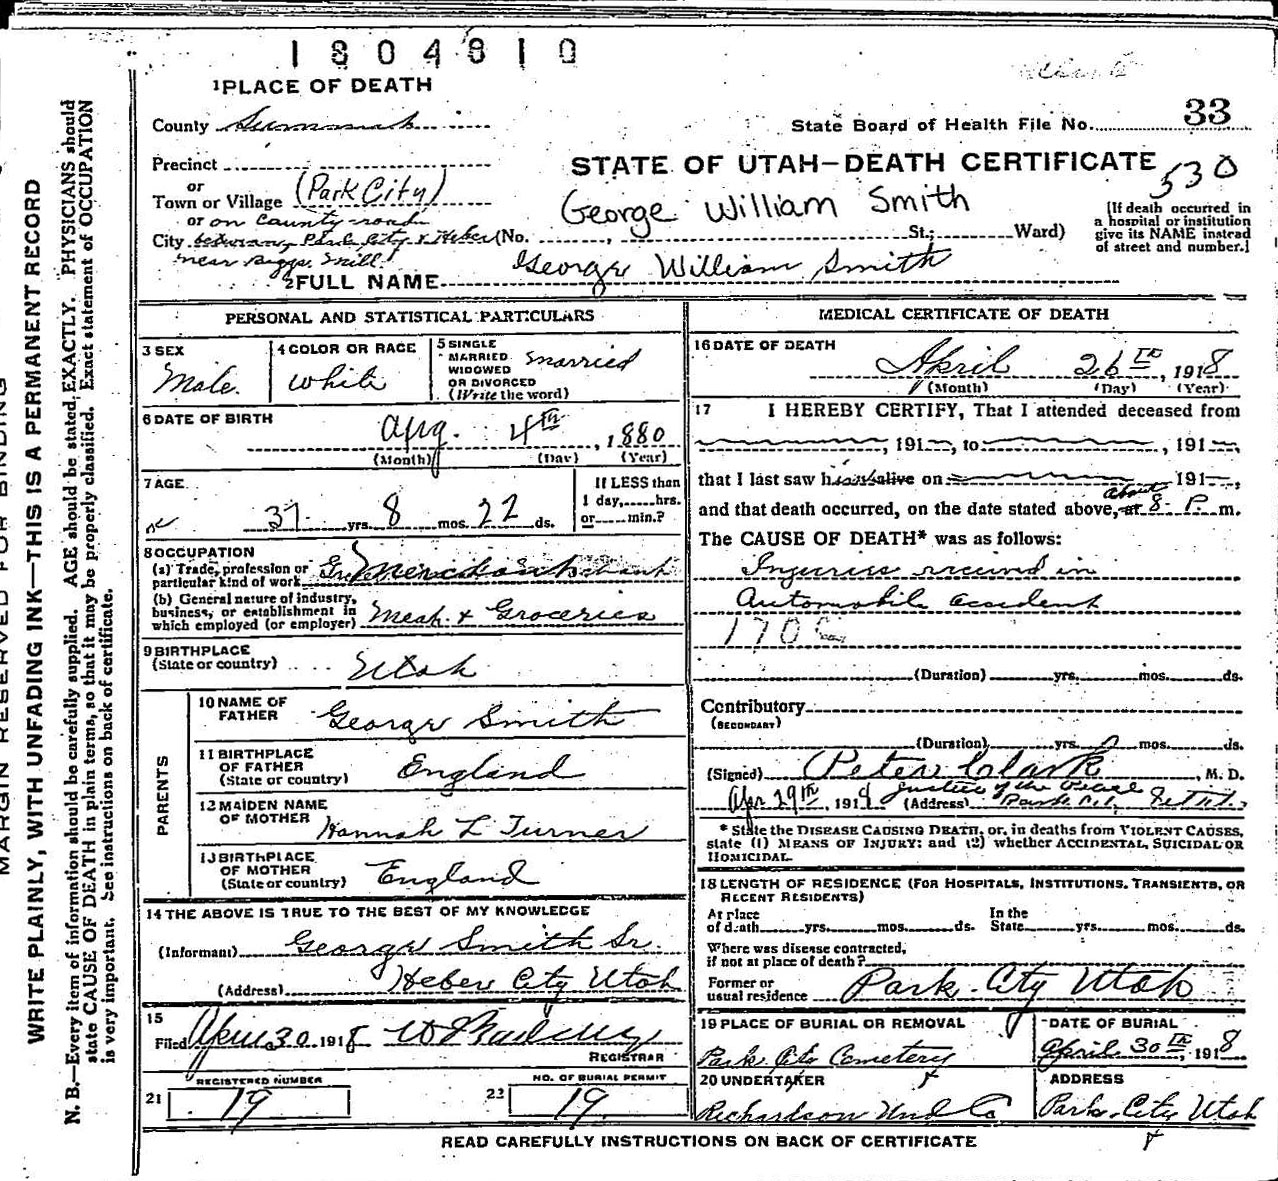 1804810
1 PLACE OF DEATH
County Summit
33
State Board of Health File No.
Precinct
STATE OF UTAH—DEATH CERTIFICATE
530
or
Town or Village (Park City)
George William Smith
[If death occurred in
a hospital or institution
give its NAME instead
of street and number.]
or on County road
City between Park City & Heber (No. , St.; Ward)
near Biggs Mill
2 FULL NAME George William Smith
PERSONAL AND STATISTICAL PARTICULARS
3 SEX
Male
4 COLOR OR RACE
White
5 SINGLE
MARRIED
WIDOWED
OR DIVORCED
(Write the word)
Married
6 DATE OF BIRTH
Aug. 4th, 1880
(Month) (Day) (Year)
7 AGE
37 yrs. 8 mos. 22 ds.
If LESS than
1 day, hrs.
or min.?
8 OCCUPATION
(a) Trade, profession or
particular kind of work
(b) General nature of industry,
business, or establishment in
which employed (or employer) Meat & Groceries
9 BIRTHPLACE
(State or country) Utah
PARENTS
10 NAME OF
FATHER George Smith
11 BIRTHPLACE
OF FATHER
(State or country) England
12 MAIDEN NAME
OF MOTHER Hannah L Turner
13 BIRTHPLACE
OF MOTHER
(State or country) England
14 THE ABOVE IS TRUE TO THE BEST OF MY KNOWLEDGE
(Informant) George Smith Sr.
(Address) Heber City Utah
15
Filed April 30 1918
REGISTRAR
REGISTERED NUMBER
21 19
NO. OF BURIAL PERMIT
22 19
MEDICAL CERTIFICATE OF DEATH
16 DATE OF DEATH
April 26th, 1918
(Month) (Day) (Year)
17 I HEREBY CERTIFY, That I attended deceased from
, 191 , to , 191 ,
that I last saw h alive on 191 ,
and that death occurred, on the date stated above, at about 8 P. m.
The CAUSE OF DEATH* was as follows:
Injuries received in
Automobile accident
170
(Duration) yrs. mos. ds.
Contributory
(SECONDARY)
(Duration) yrs. mos. ds.
(Signed) Peter Clark, M. D.
Justice of the Peace
Apr 29th, 191 (Address) Park City Utah
* State the DISEASE CAUSING DEATH, or, in deaths from VIOLENT CAUSES,
state (1) MEANS OF INJURY; and (2) whether ACCIDENTAL, SUICIDAL OR
HOMICIDAL.
18 LENGTH OF RESIDENCE (FOR HOSPITALS, INSTITUTIONS, TRANSIENTS, OR
RECENT RESIDENTS)
At place
of death yrs. mos. ds.
In the
State yrs. mos. ds.
Where was disease contracted,
if not at place of death?
Former or
usual residence Park City Utah
19 PLACE OF BURIAL OR REMOVAL
Park City Cemetery
DATE OF BURIAL
April 30th, 1918
20 UNDERTAKER
Richardson Und Co
ADDRESS
Park City Utah
READ CAREFULLY INSTRUCTIONS ON BACK OF CERTIFICATE
MARGIN RESERVED FOR BINDING
WRITE PLAINLY, WITH UNFADING INK—THIS IS A PERMANENT RECORD
N. B.—Every item of information should be carefully supplied. AGE should be stated EXACTLY. PHYSICIANS should
state CAUSE OF DEATH in plain terms, so that it may be properly classified. Exact statement of OCCUPATION
is very important. See instructions on back of certificate.